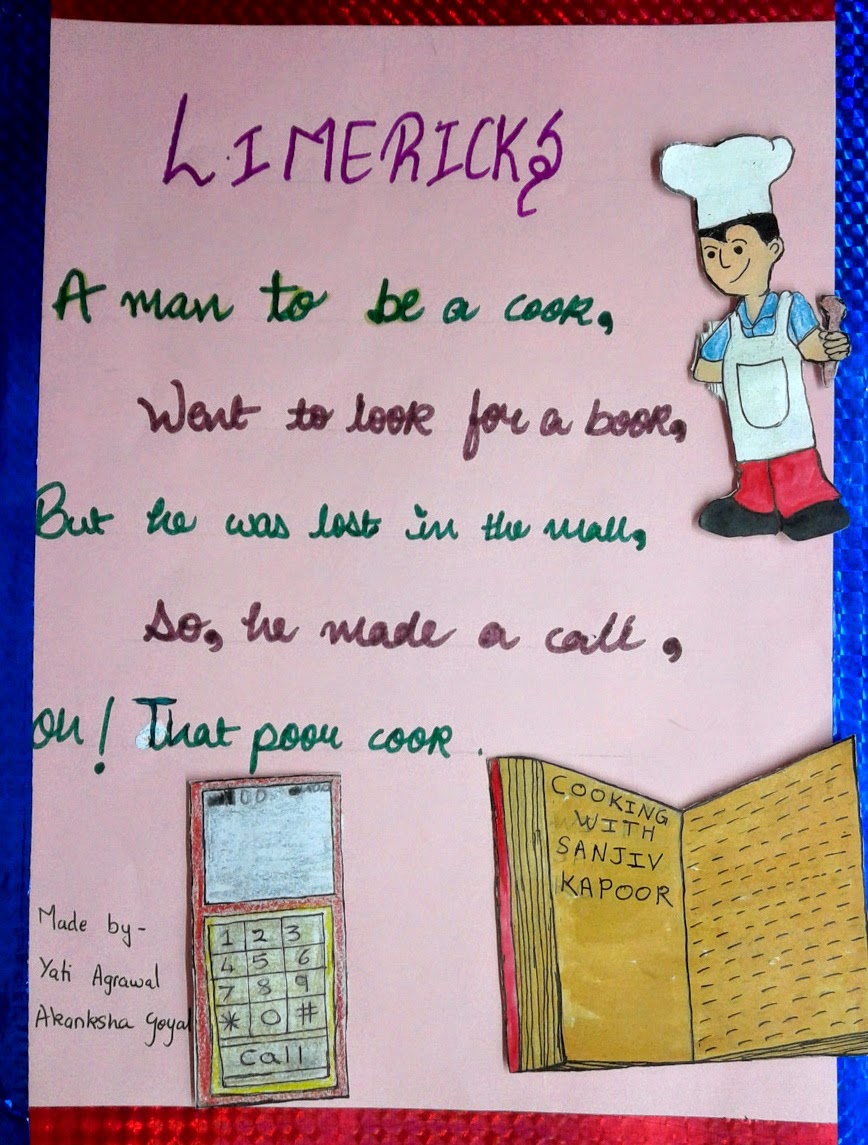 LIMERICKS
A man to be a cook,
Went to look for a book,
But he was lost in the mall,
So, he made a call,
Oh! That poor cook.
COOKING
WITH
SANJIV
KAPOOR
Made by-
Yati Agrawal
Akanksha Goyal
1 2 3
4 5 6
7 8 9
* 0 #
Call